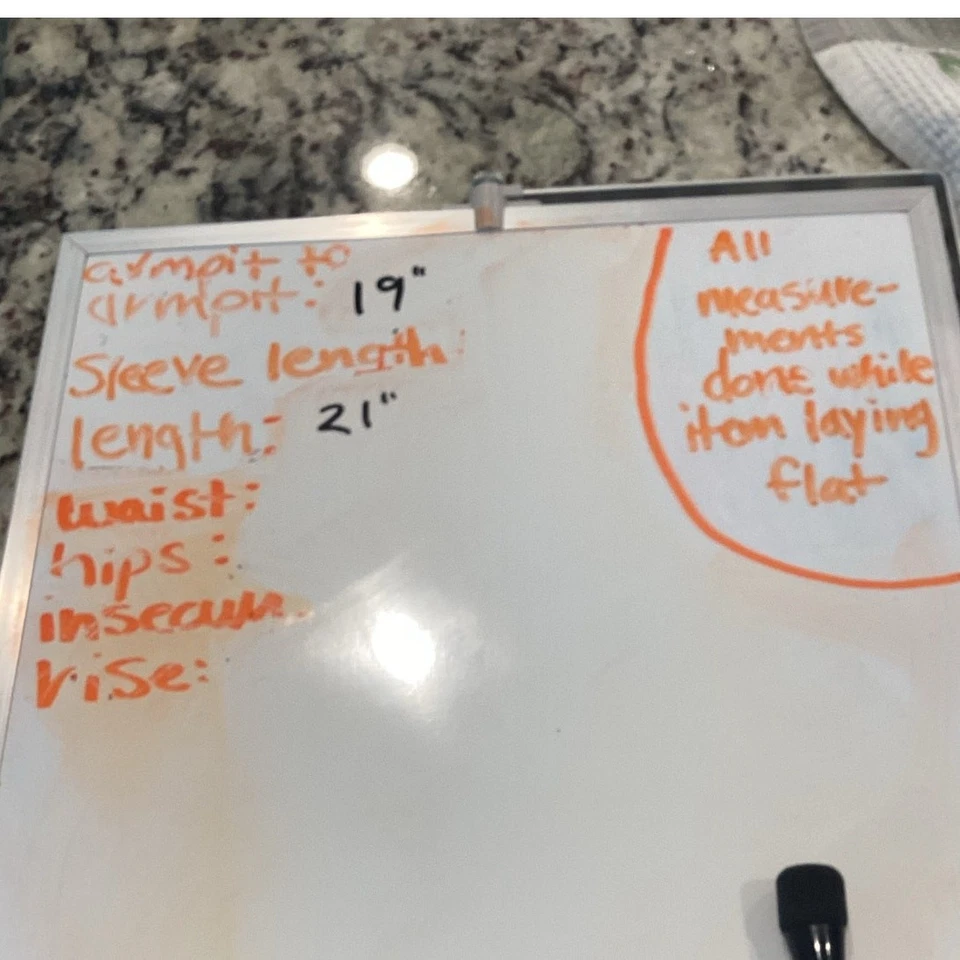 armpit to
armpit: 19"
Sleeve length:
length: 21"
waist:
hips:
inseam
rise:
All
measure-
ments
done while
item laying
flat